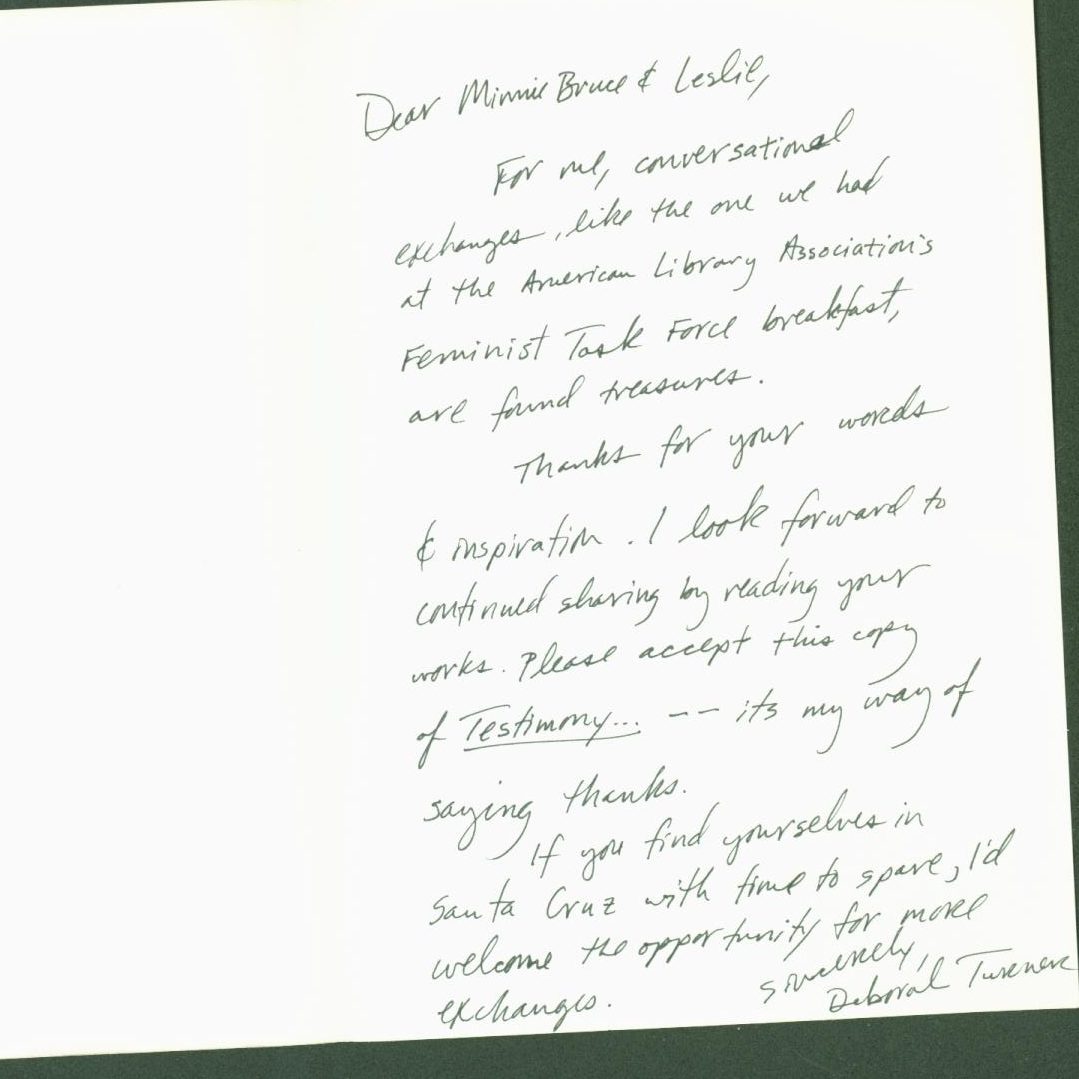 Dear Minnie Bruce & Leslie,
For me, conversational
exchanges, like the one we had
at the American Library Association's
Feminist Task Force breakfast,
are found treasures.
Thanks for your words
& inspiration. I look forward to
continued sharing by reading your
works. Please accept this copy
of Testimony... -- its my way of
saying thanks.
If you find yourselves in
Santa Cruz with time to spare, I'd
welcome the opportunity for more
exchanges.
Sincerely,
Deborah Turner